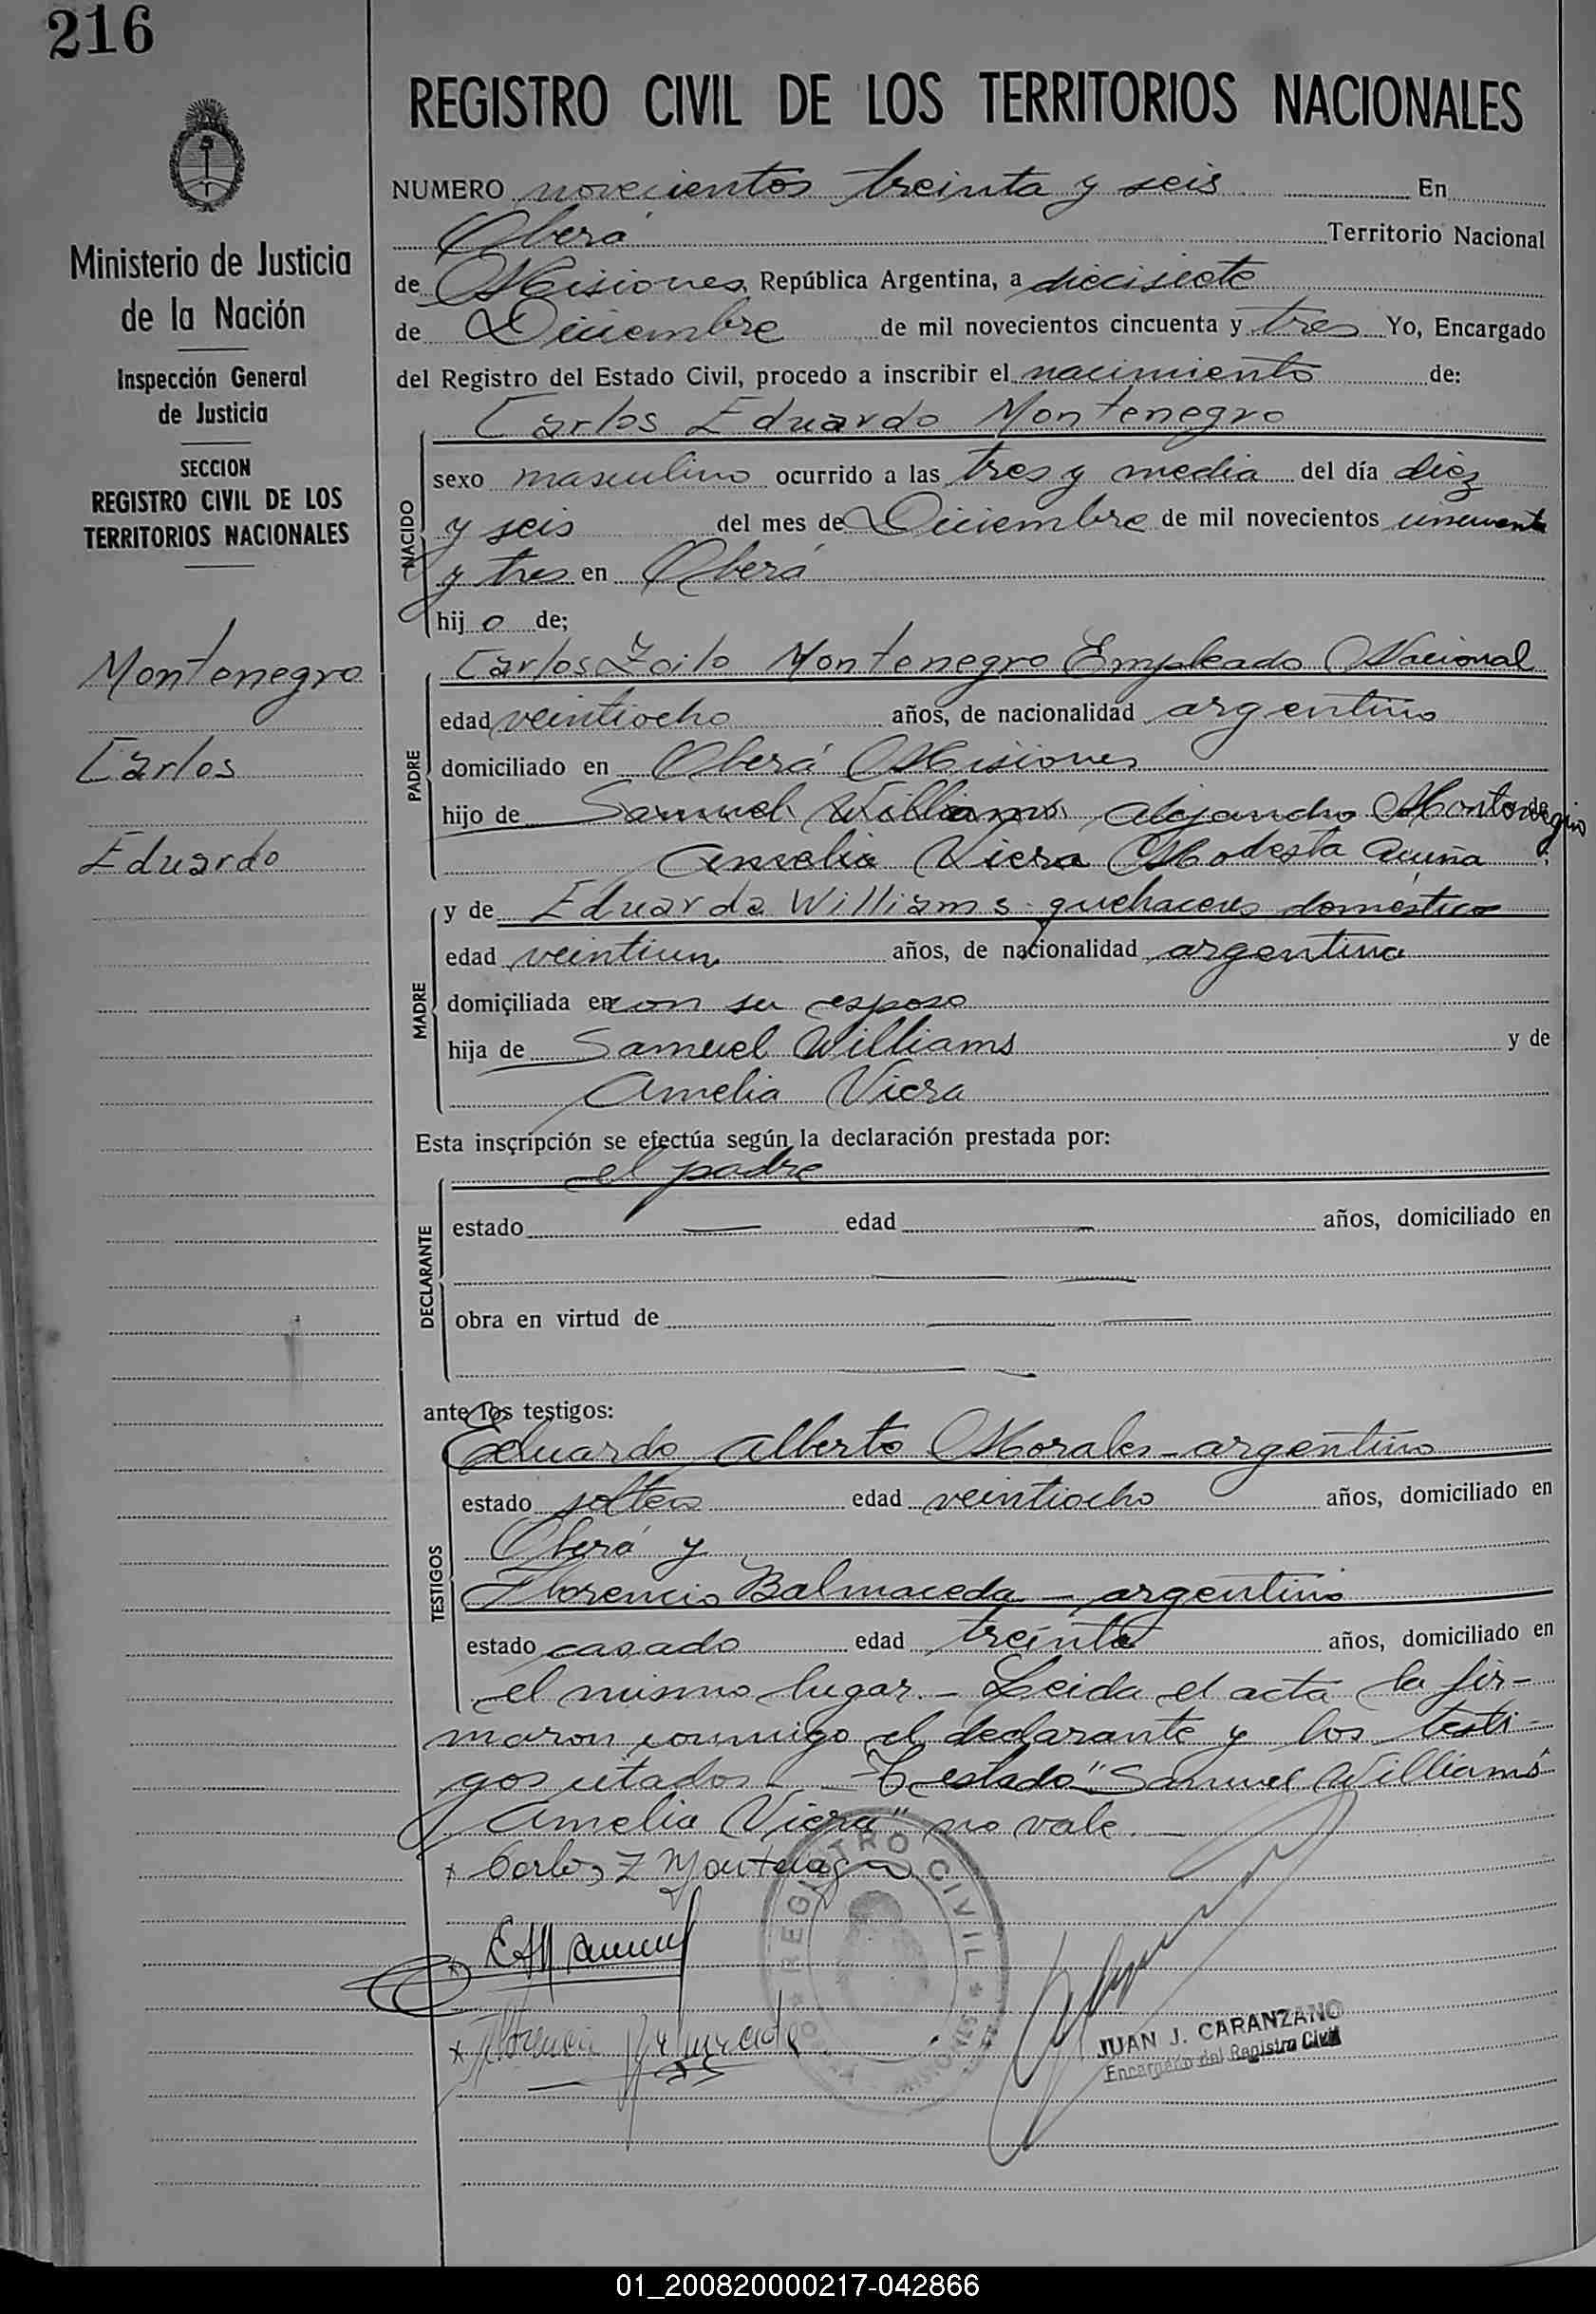 216
REGISTRO CIVIL DE LOS TERRITORIOS NACIONALES
Ministerio de Justicia
de la Nación
Inspección General
de Justicia
SECCION
REGISTRO CIVIL DE LOS
TERRITORIOS NACIONALES
Montenegro
Carlos
Eduardo
NUMERO novecientos treinta y seis En
Oberá Territorio Nacional
de Misiones, República Argentina, a diecisiete
de Diciembre de mil novecientos cincuenta y tres Yo, Encargado
del Registro del Estado Civil, procedo a inscribir el nacimiento de:
Carlos Eduardo Montenegro
NACIDO
sexo masculino ocurrido a las tres y media del día diez
y seis del mes de Diciembre de mil novecientos cincuenta
y tres en Oberá
hijo de;
PADRE
Carlos Zoilo Montenegro Empleado Nacional
edad veintiocho años, de nacionalidad argentino
domiciliado en Oberá Misiones
hijo de Samuel Williams Alejandro Montenegro y de
Amelia Viera Modesta Acuña
MADRE
y de Eduarda Williams quehaceres domésticos
edad veintiun años, de nacionalidad argentina
domiciliada en con su esposo
hija de Samuel Williams y de
Amelia Viera
Esta inscripción se efectúa según la declaración prestada por:
el padre
DECLARANTE
estado — edad — años, domiciliado en
obra en virtud de
ante los testigos:
TESTIGOS
Eduardo Alberto Morales - argentino
estado soltero edad veintiocho años, domiciliado en
Oberá y
Florencio Balmaceda - argentino
estado casado edad treinta años, domiciliado en
el mismo lugar.- Leida el acta la fir-
maron conmigo el declarante y los testi-
gos citados - Testado "Samuel Williams
Amelia Viera" no vale.-
x Carlos Z Montenegro
x
x Florencio Balmaceda
REGISTRO CIVIL
MISIONES
JUAN J. CARANZANO
Encargado del Registro Civil
01_200820000217-042866